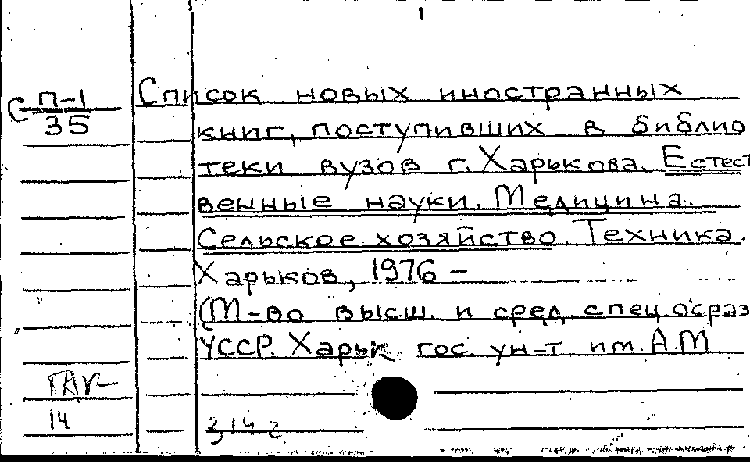 С П-1
35
Список новых иностранных
книг, поступивших в библио
теки вузов г. Харькова. Естест
венные науки. Медицина.
Сельское хозяйство. Техника.
Харьков, 1976 –
(М-во высш. и сред. спец. образ
УССР. Харьк. гос. ун-т им. А.М
14